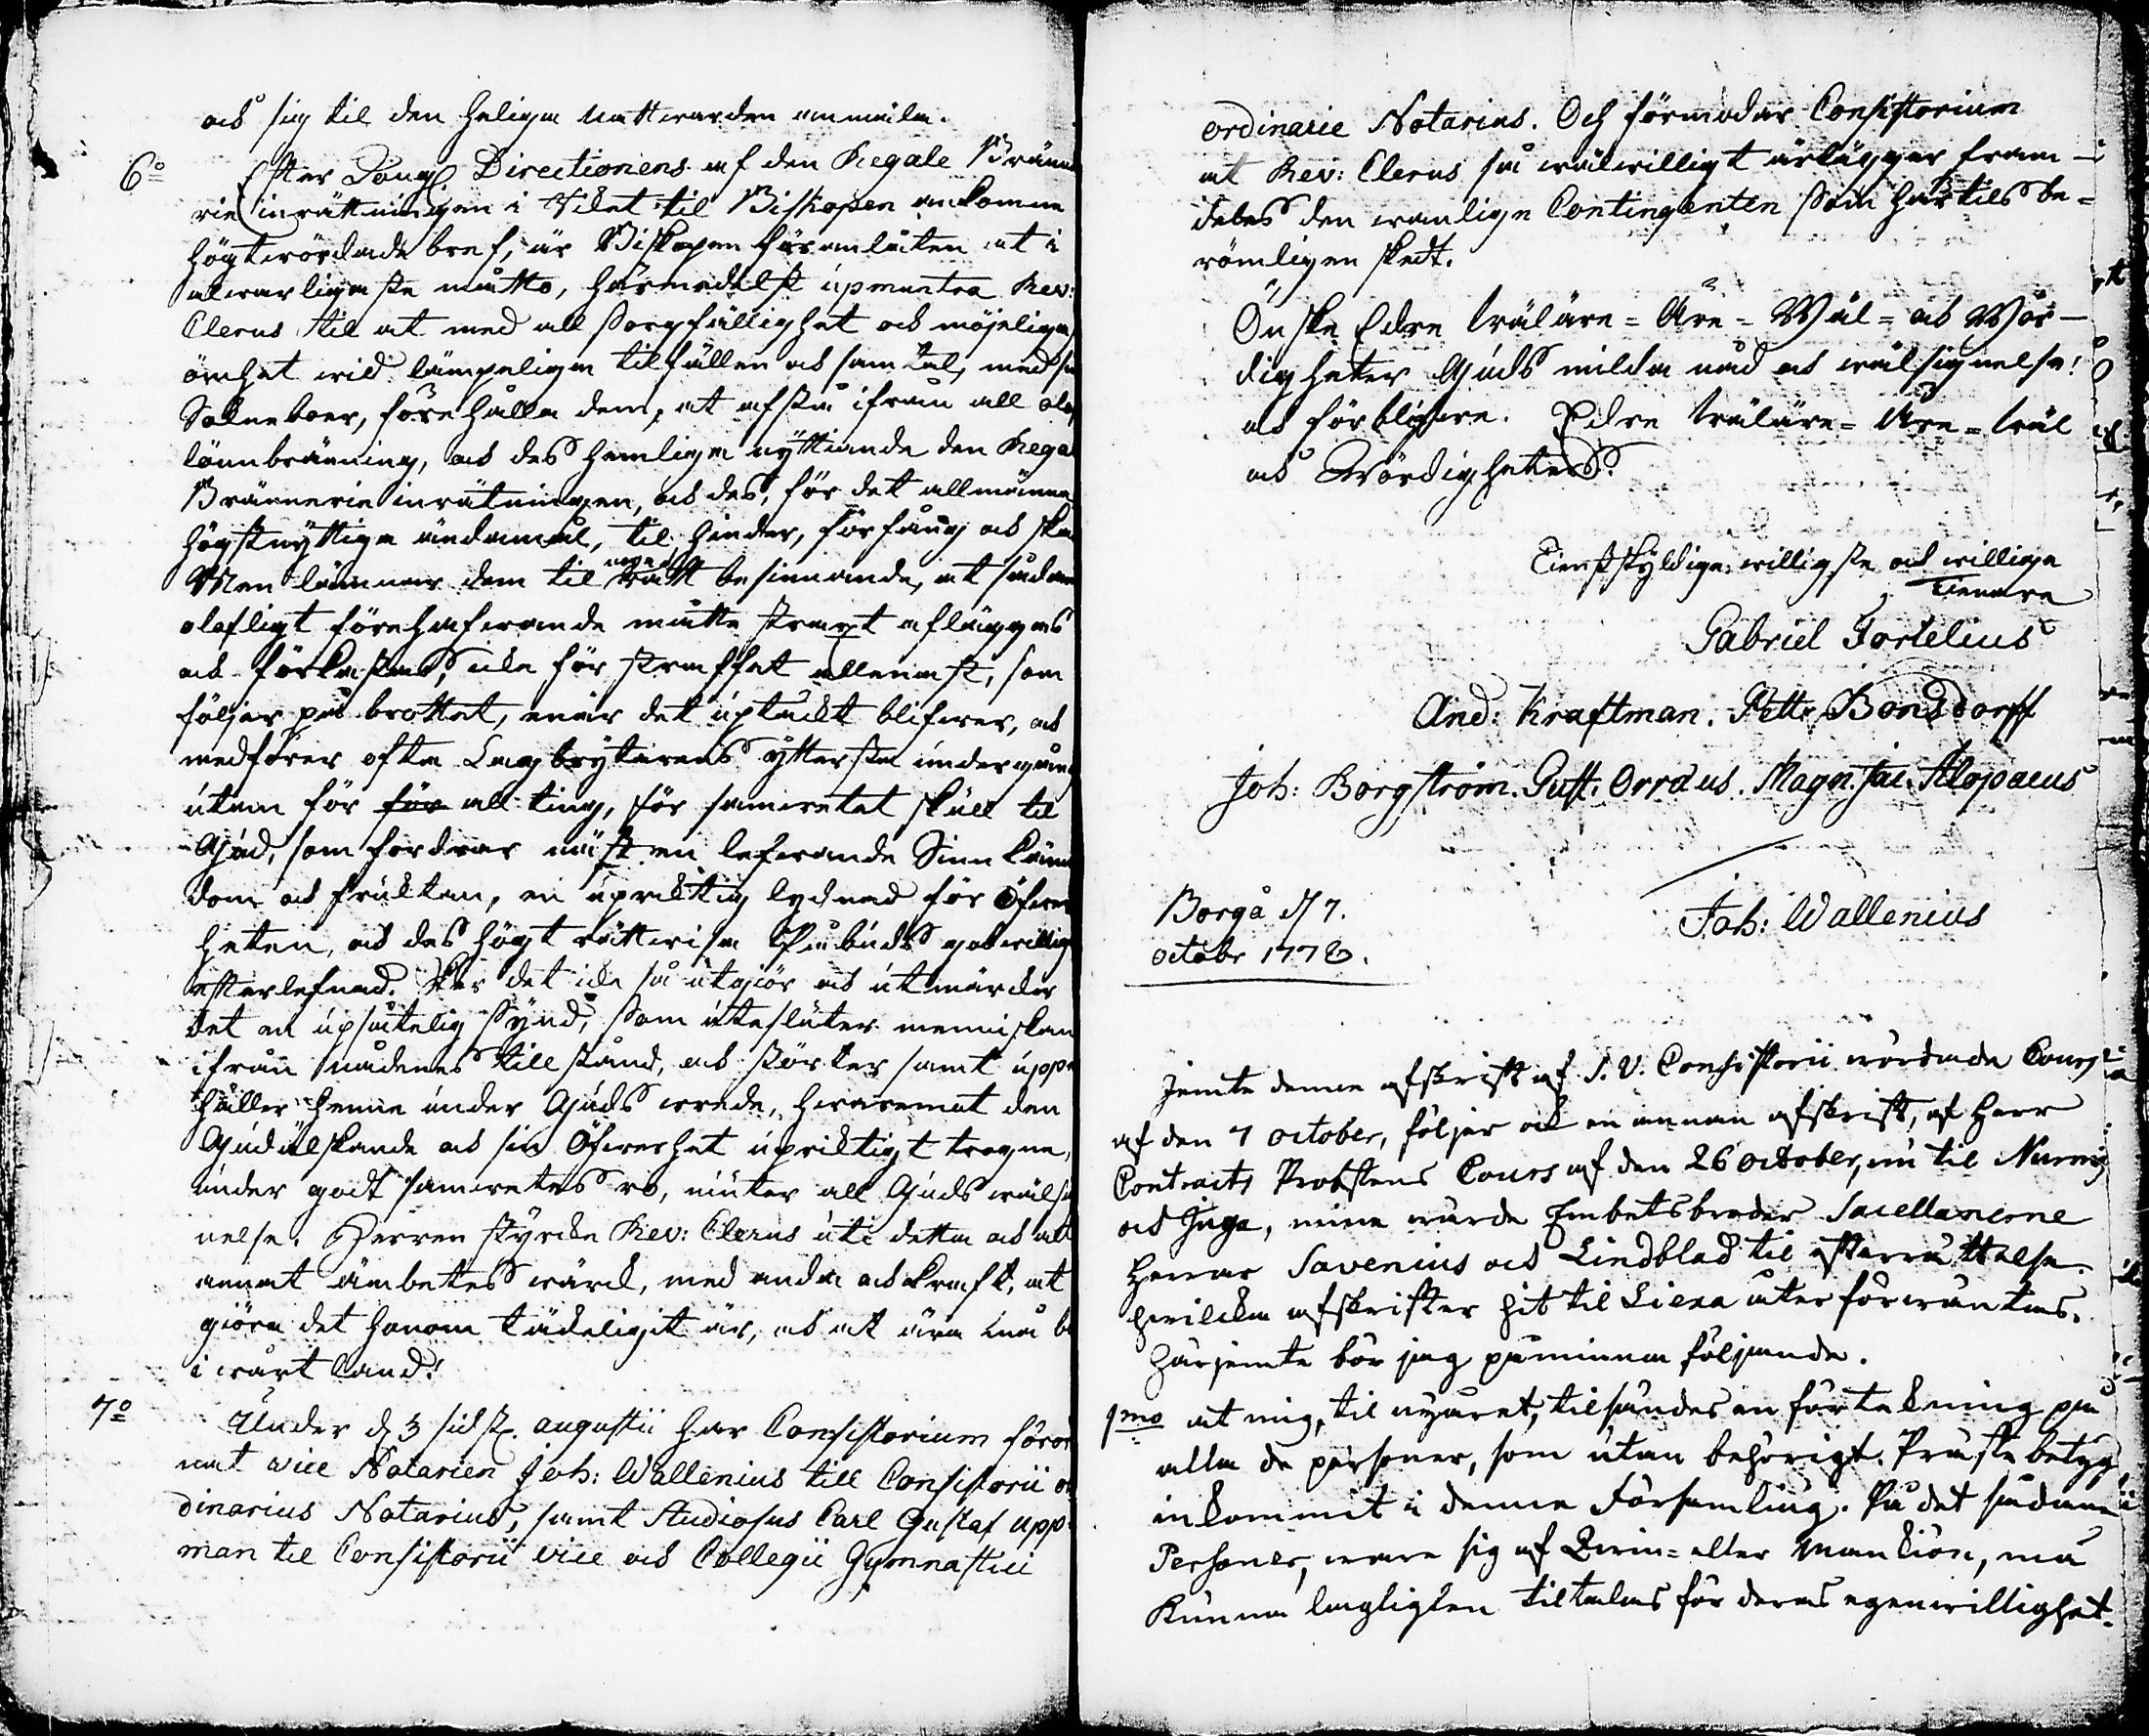 ock sig til den heliga Nattwarden anmäla.
6o Efter Kongl. Directionens af den Regale Bränne
rie inrättningen i Riket til Biskopen ankomne
högtwördade bref, är Biskopen föranlåten at i
alwarligaste måtto, härmedelst upmuntra Rev:
Clerus til at med all sorgfällighet och möjeliga
ömhet wid lämpeliga tilfällen och samtal, med sin
Sokneboer, förehålla dem, at afstå ifrån all olof
lönnbränning, ock des hemliga nyttiande den Rega
Brännerie inrätningen, ock des, för det allmänna
högstnyttiga ändamål, til hinder, förfång ock ska
Men lämnar dem til noga rätt besinnande, at sådant
olofligt förehafwande måtte straxt afläggas
ock förkastas, icke för straffet allenast, som
följer på brottet, enär det uptäckt blifwer, ock
medförer ofta Lagbrytarens yttersta undergång
utan för för all ting, för samwetet skull til
Gud, som fordrar näst en lefwande Sinn känne
dom ock fruktan, en upriktig lydnad för Öfwer
heten, ock des högt rättwisa Påbuds godwillig
efterlefnad. Sker det icke så utgiör ock utmärcker
det en upsåtelig Synd, som utesluter menniskan
ifrån nådenes tillstånd, ock störter samt uppe
håller henne under Guds wrede, hwaremot den
Gudälskande ock sin Öfwerhet upriktigt trogne,
under godt samwetes ro, niuter all Guds wälsi
nelse. Herren styrcke Rev: Clerus uti detta ock alt
annat ämbetes wärck, med anda ock kraft, at
giöra det honom täckeligit är, ock at ära må bo
i wårt land!
7o Under d 3 sidst. augustii har Consistorium föror
nat vice Notarien Joh: Wallenius till Consistorii or
dinarius Notarius, samt Studiosus Carl Gustaf Upp
man til Consistorii vice ock Collegii Gymnastici
ordinarie Notarius. Och förmodar Consistorium
at Rev: Clerus så wälwilligt ärlägger fram-
deles den wanliga Contingenten som härtils be=
römligen skedt.
Önske Edre Wälära= Äre= Wäl= ock Wör-
digheter Guds milda nåd ock wälsignelse!
ock förblifwe. Edre Wälära= Äre= Wäl
ock Wördigheters.
Tienstskyldige willigste ock willige
Tienare
Gabriel Fortelius
And: Kraftman. Pettr Bonsdorff
Joh: Borgström. Gust. Orræus. Magn. Jac. Alopaeus
Borgå d 7.
octobr 1778.
Joh: Wallenius
Jemte denna afskrift af S. V. Consistorii wördade Cours
af den 7 october, följer ock en annan afskrift, af Herr
Contracts Probstens Cours af den 26 october, nu til Nurmis
ock Juga, mine wärde Embetsbröder Sacellanerne
Herrar Savenius ock Lindblad til efterrättelse.
hwilcka afskrifter hit til Liexa åter förwäntas.
Härjemte bör jag påminna följande.
1mo at mig, til nyåret, tilsändes en förtekning på
alla de personer, som utan behörigt Prästebetyg
inkommit i denne Församling. På det sådane
Personer, ware sig af Qwin= eller Mankiön, må
kunna lagligen tiltalas för deras egenwillighet.